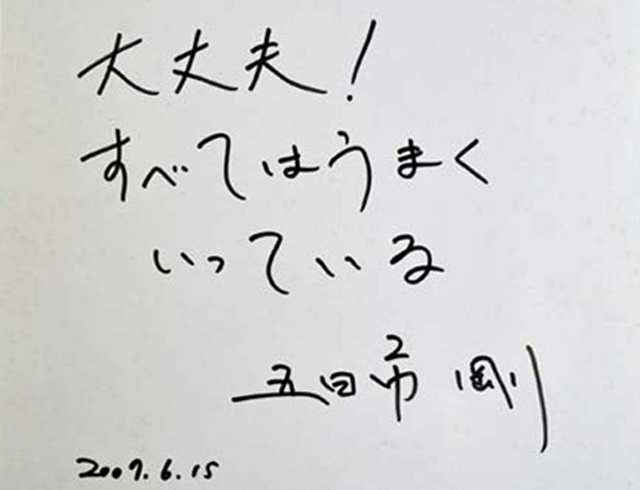 大丈夫!
すべてはうまく
いっている
五日市 剛
2009.6.15